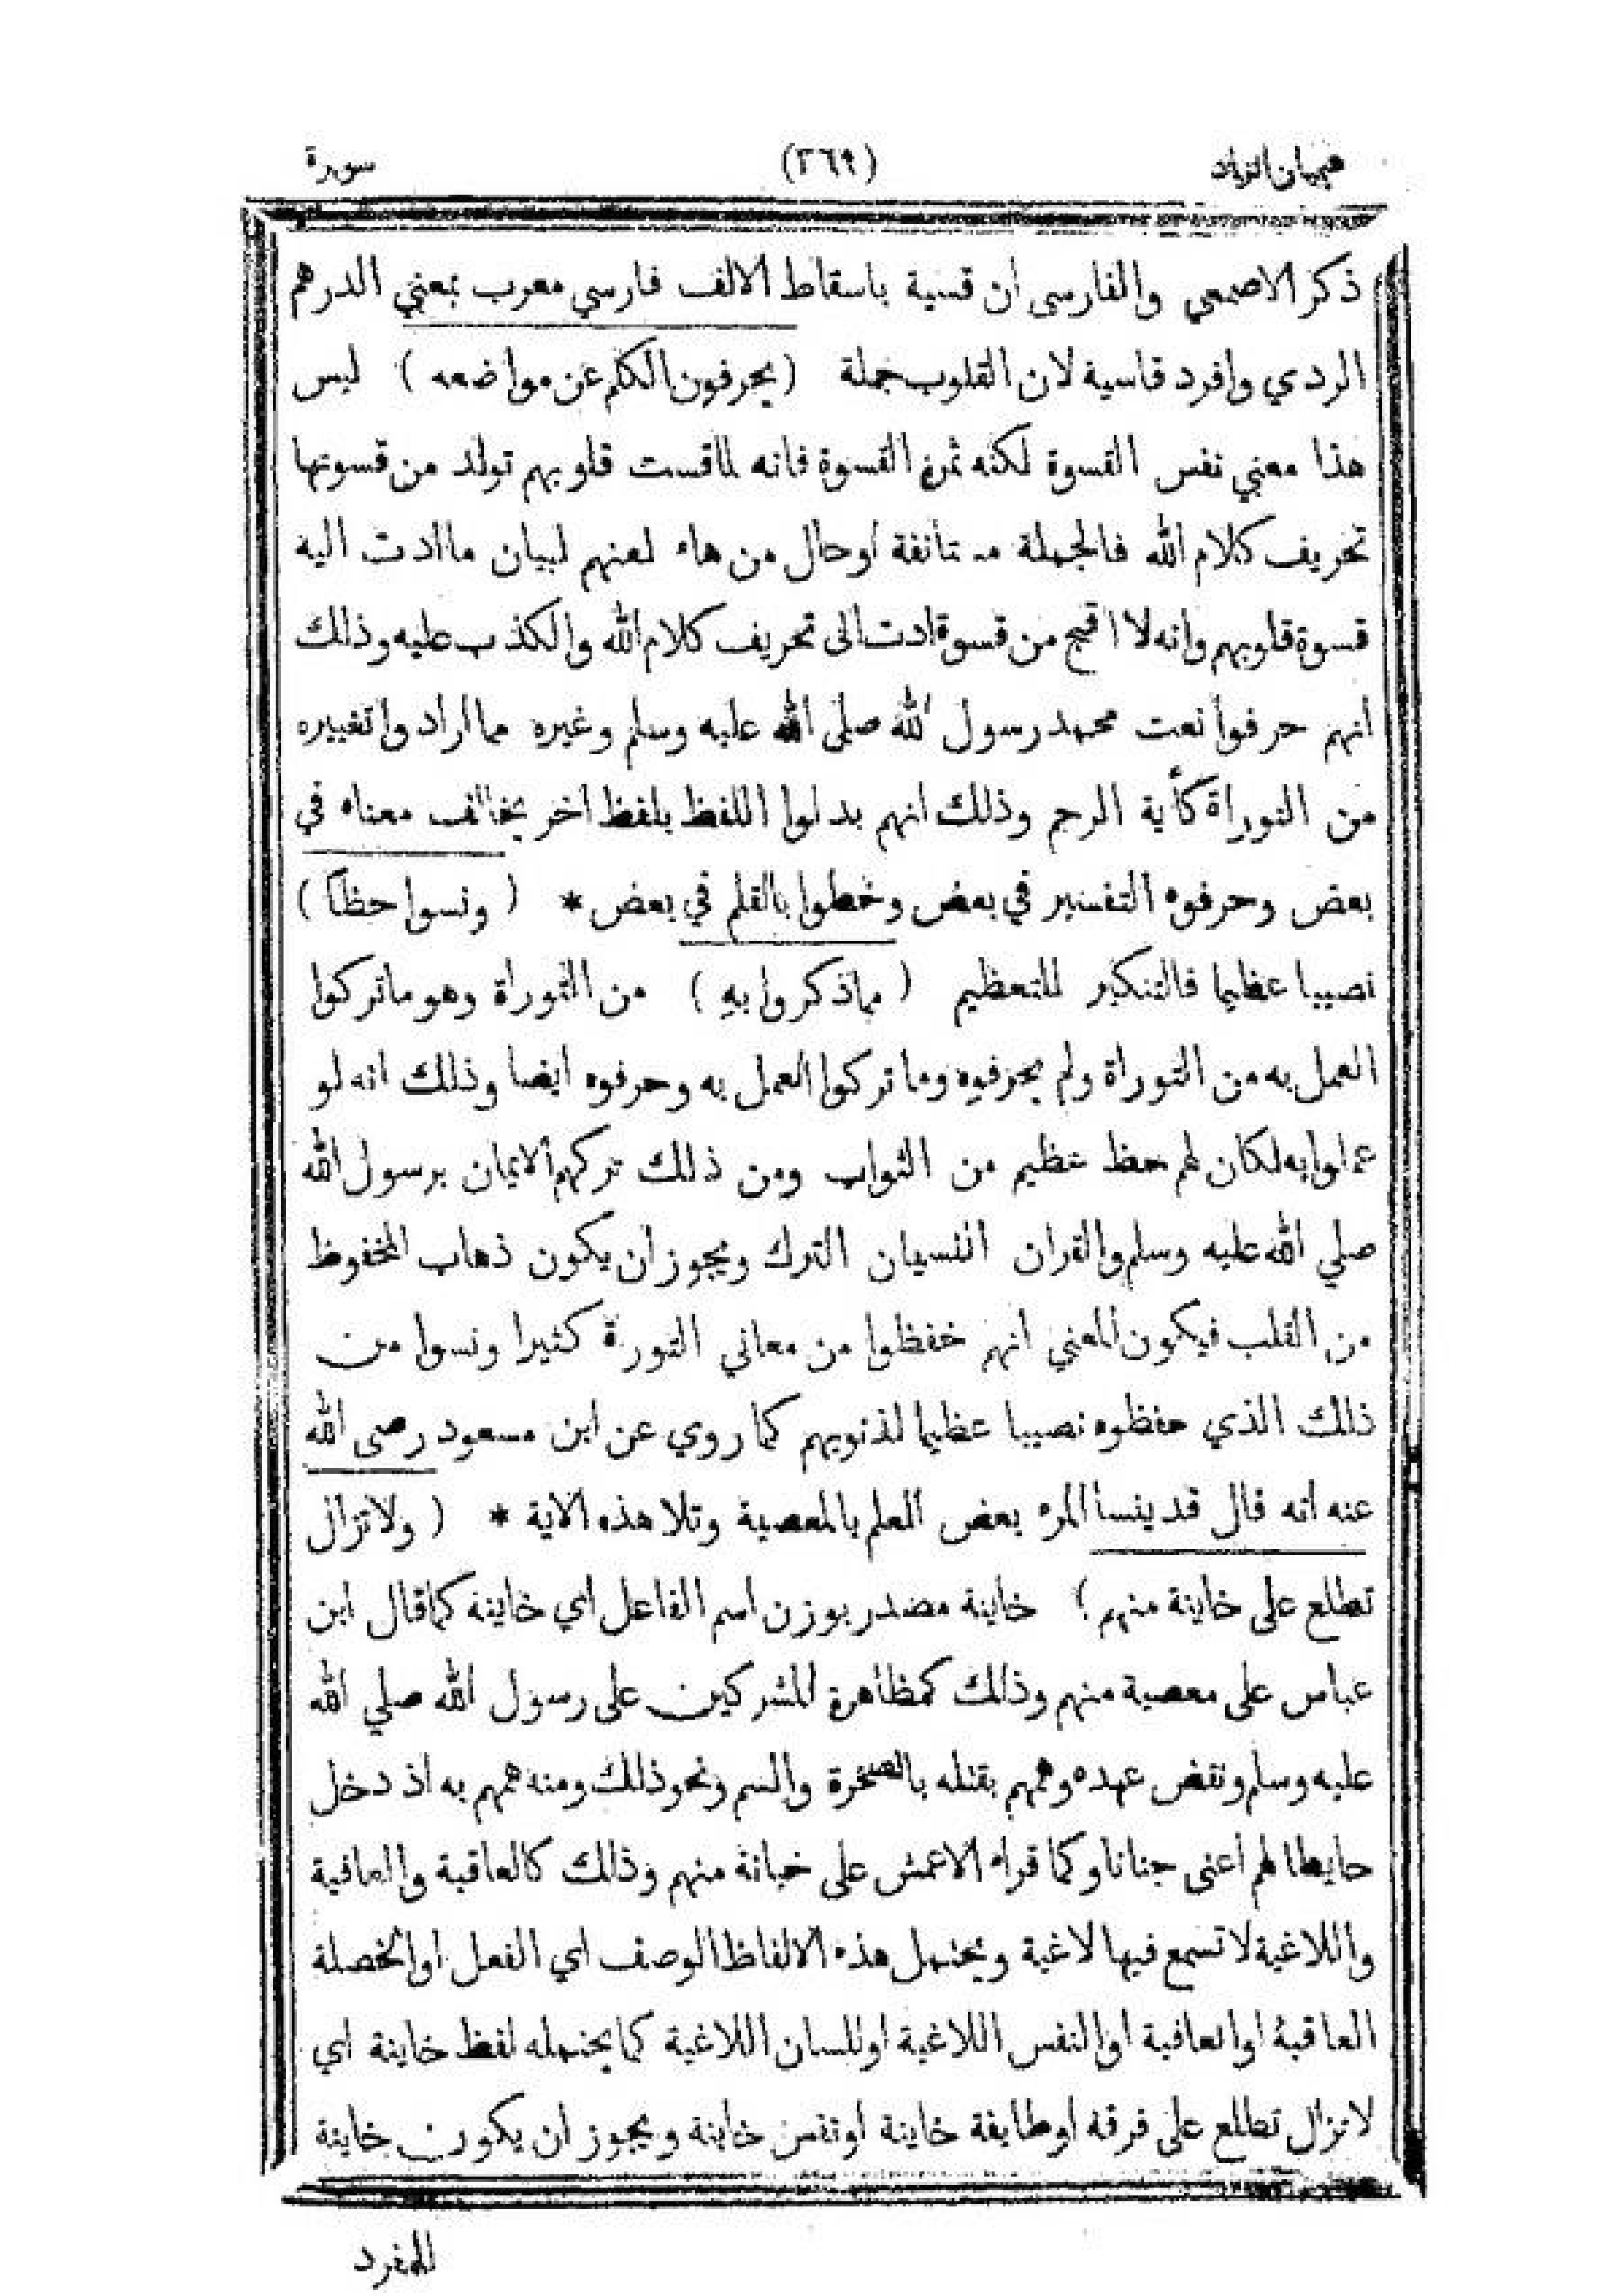 هميان الزاد (٣٦٩) سورة
ذكر الاصمعي والفارسى ان قسية باسقاط الالف فارسي معرب بمعني الدرهم
الردي وافرد قاسية لان القلوب جملة ( يحرفون الكلم عن مواضعه ) ليس
هذا معني نفس القسوة لكنه ثمرة القسوة فانه لما قست قلوبهم تولد من قسوتها
تحريف كلام الله فالجملة مستانفة اوحال من هاء لعنهم لبيان ما ادت اليه
قسوة قلوبهم وانه لا اقبح من قسوة ادت الى تحريف كلام الله والكذب عليه وذلك
انهم حرفوا نعت محمد رسول الله صلى الله عليه وسلم وغيره مما ارادوا تغييره
من التوراة كأية الرجم وذلك انهم بدلوا اللفظ بلفظ اخر يخالف معناه في
بعض وحرفوه التفسير في بعض وخطوا بالقلم في بعض * ( ونسوا حظا )
نصيبا عظيما فالتنكير للتعظيم ( مما ذكروا به ) من التوراة وهو ما تركوا
العمل به من التوراة ولم يحرفوه وما تركوا العمل به وحرفوه ايضا وذلك انه لو
عملوا به لكان لهم حظ عظيم من الثواب ومن ذلك تركهم الايمان برسول الله
صلي الله عليه وسلم والقران النسيان الترك ويجوز ان يكون ذهاب المحفوظ
من القلب فيكون المعني انهم حفظوا من معاني التورة كثيرا ونسوا من
ذلك الذي حفظوه نصيبا عظيما لذنوبهم كما روي عن ابن مسعود رضى الله
عنه انه قال قد ينسا المرء بعض العلم بالمعصية وتلا هذه الاية * ( ولا تزال
تطلع على خاينة منهم ) خاينة مصدر بوزن اسم الفاعل اي خاينة كما قال ابن
عباس على معصية منهم وذلك كمظاهرة المشركين على رسول الله صلي الله
عليه وسلم ونقض عهده وهمهم بقتله بالصخرة والسم ونحو ذلك ومنه همهم به اذ دخل
حايطا لهم اعنى جنانا وكما قراه الاعمش على خيانة منهم وذلك كالعاقبة والعافية
واللاغية لا تسمع فيها لاغية ويحتمل هذه الالفاظ الوصف اي الفعل او الخصلة
العاقبة او العافية او النفس اللاغية او اللسان اللاغية كما يحتمله لفظ خاينة اي
لا تزال تطلع على فرقة او طايفة خاينة او نفس خاينة ويجوز ان يكون خاينة
للمفرد